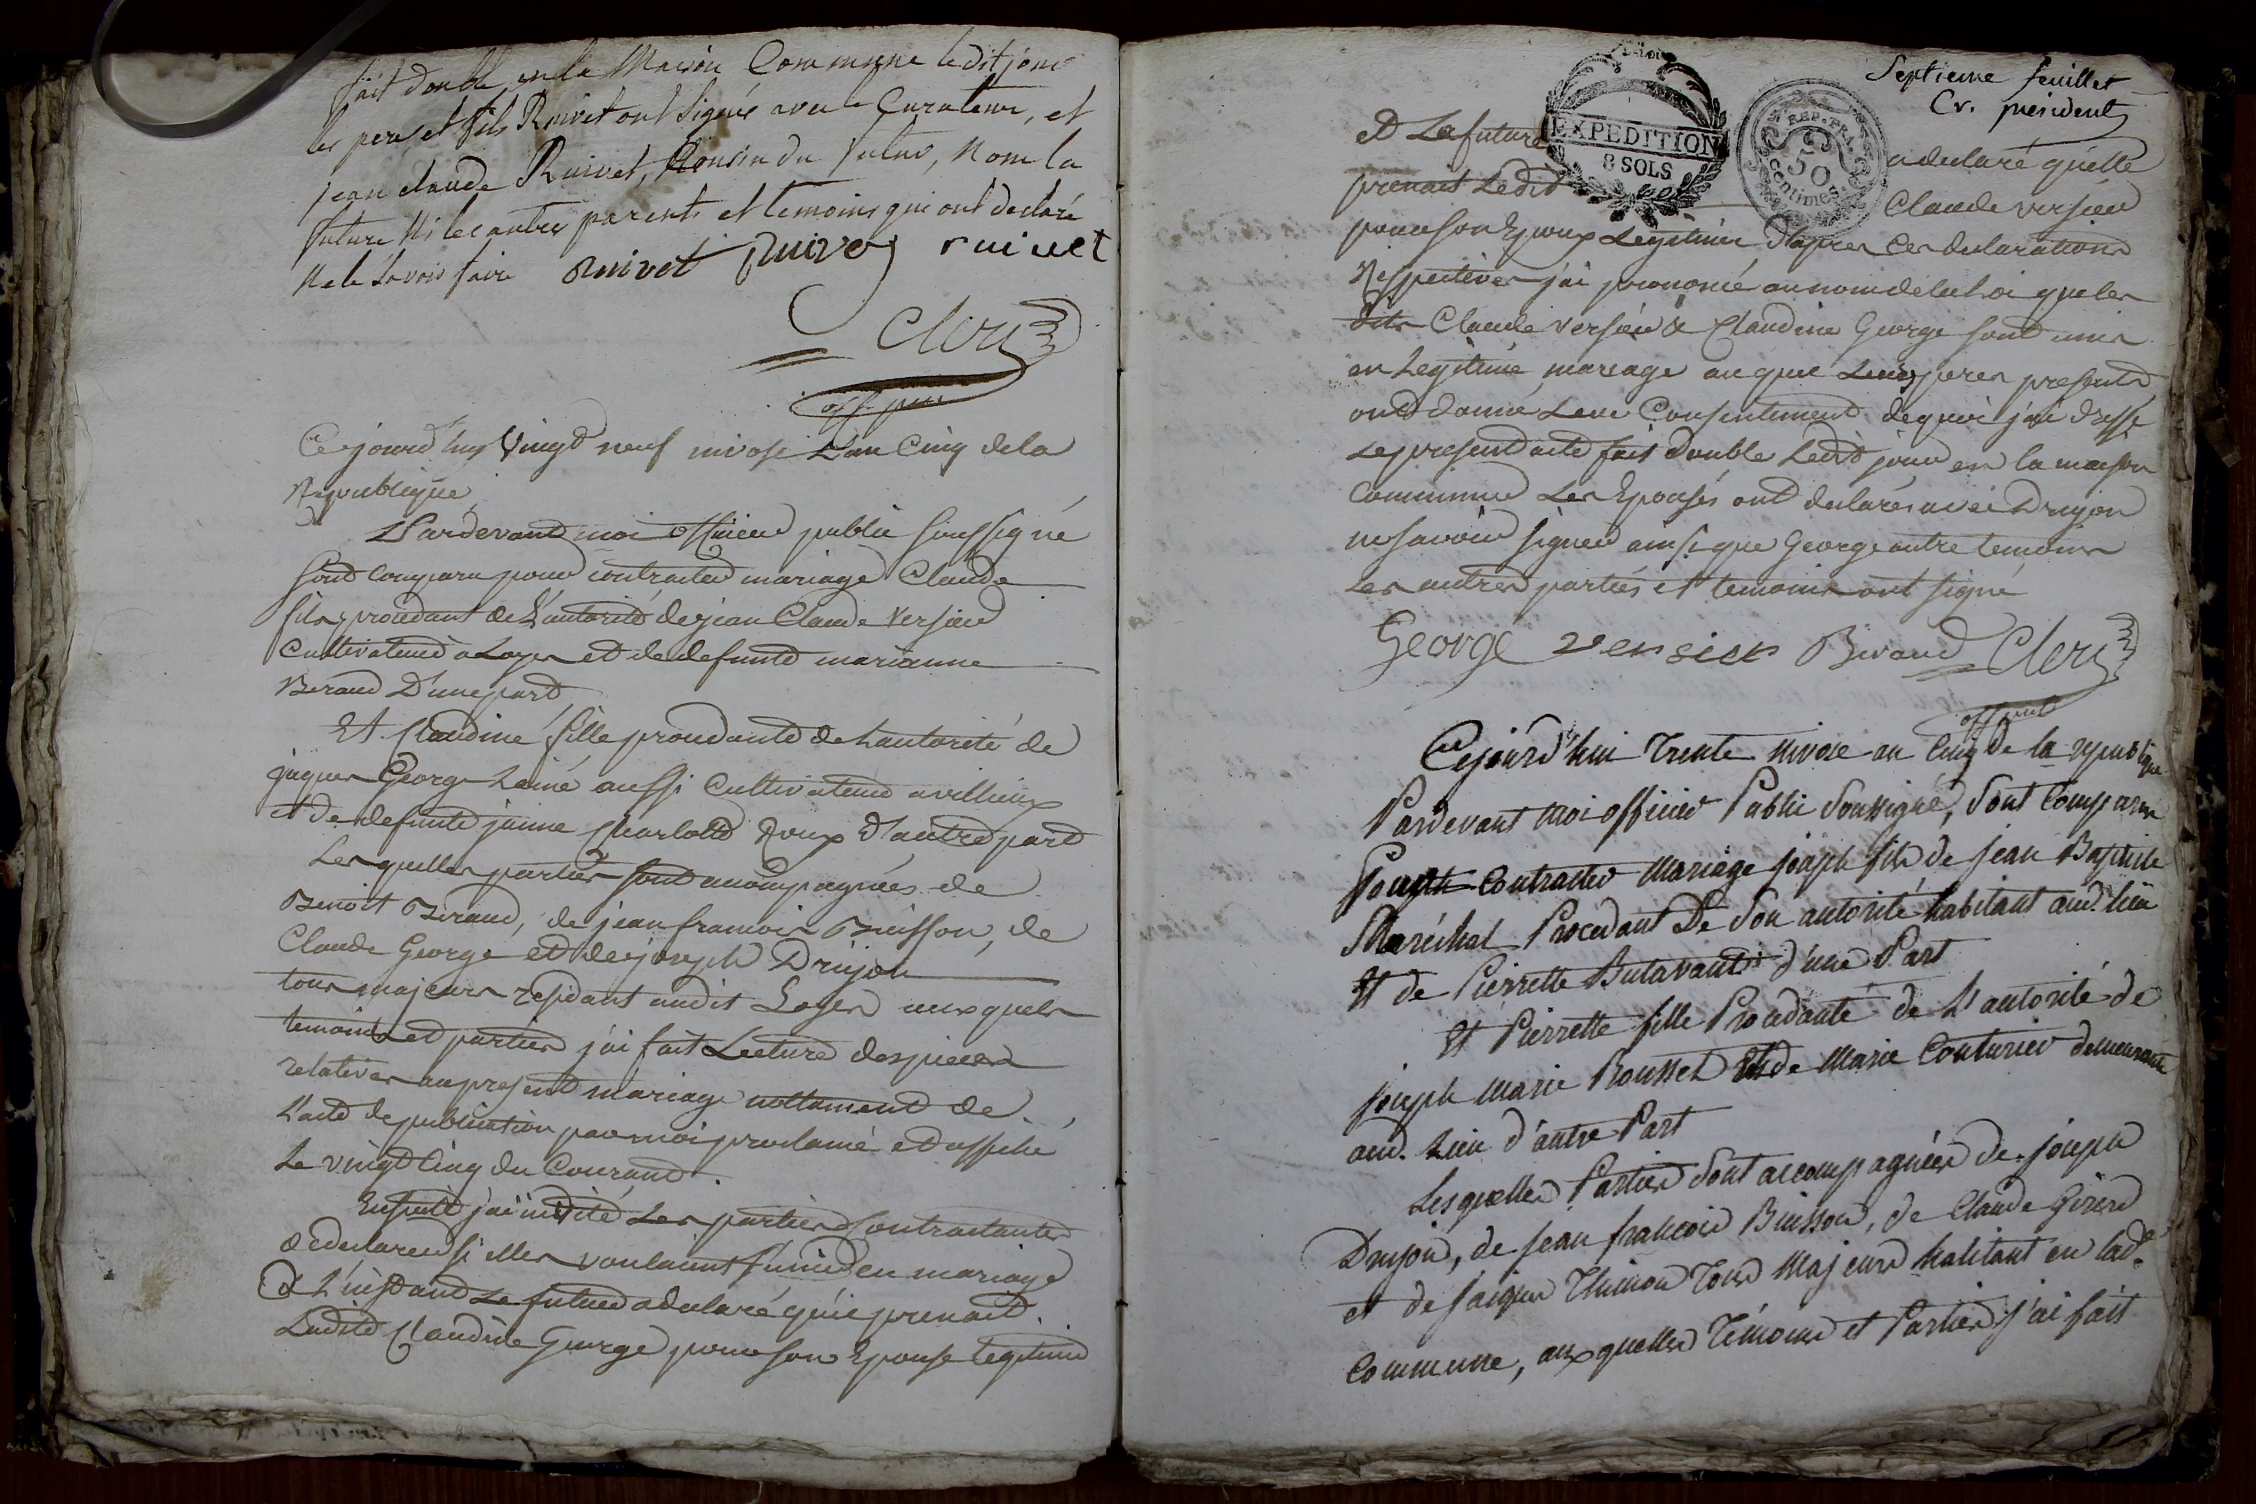 fait double en la Maison Commune ledit jour
les pere et fils Ruivet ont signés avec Curateur, et
jean claude Ruivet, Cousin du futur, Non la
future Ni les autres parents et temoins qui ont declaré
Ne le Savoir faire Ruivet Ruivet ruivet
Clerc
off. pub.
Cejourd'huy Vingt neuf nivose L'an Cinq de la
Republique
Pardevant moi officier public soussigné
sont comparu pour contracter mariage Claude
fils procedant de L'autorité de jean Claude Versieu
Cultivateur a Loyes et de defunte marianne
Beraud D'une part
Et Claudine fille procedante de Lautorité de
jaques George Lainé aussi Cultivateur a villieux
et de defunte jeanne Charlotte Roux d'autre part
Lesquelles parties sont acompagnées de
Benoit Beraud, de jean francois Buisson, de
Claude George et de joseph Drujon
tous majeurs residant audit Loyes auxquels
temoins et parties j'ai fait Lecture des pieces
relatives au present mariage nottament de
L'acte de publication par moi proclamé et affiché
Le vingt Cinq du Courant.
Ensuite j'ai invité Les parties Contractantes
de declarer si elles voulaient s'unir en mariage
et L'instant Le futur a declaré qu'il prenait
Ladite Claudine George pour son Epouse legitime
Septieme feuillet
Cr. president
EXPEDITION
8 SOLS
REP. FRA.
50
Centimes
et La future a declaré qu'elle
prenait Ledit Claude versieu
pour son Epoux Legitime D'apres Ces declarations
Respectives j'ai prononcé au nom de la Loi que les
dits Claude versieu & Claudine George sont unis
en Legitime mariage auquel Leurs peres presents
ont donné Leur Consentement dequoi j'ai dressé
Le present acte fait double Ledit jour en la maison
Commune Les Epousés ont declarés avec Drujon
ne savoir signer ainsi que George autre temoin
Les autres parties et temoins ont signé
George versieu Beraud Clerc
off. pub.
Cejourd'hui Trente Nivose an Cinq de la republique
Pardevant Moi officier Public Soussigné, sont Comparu
Pour Contracter Mariage joseph fils de jean Baptiste
Maréchal Procedant De Son autorité habitant aud. lieu
Et de Pierrette Butavant d'une Part
Et Pierrette fille Procedante de L'autorité de
joseph Marie Rousset Et de Marie Couturier demeurante
aud. Lieu d'autre Part
Lesquelles Parties Sont accompagnées de joseph
Drujon, de jean francois Buisson, de Claude Girerd
et de jaique Thimon Tous Majeurs habitant en lad.
Commune, auxquelles Témoins et Parties j'ai fait